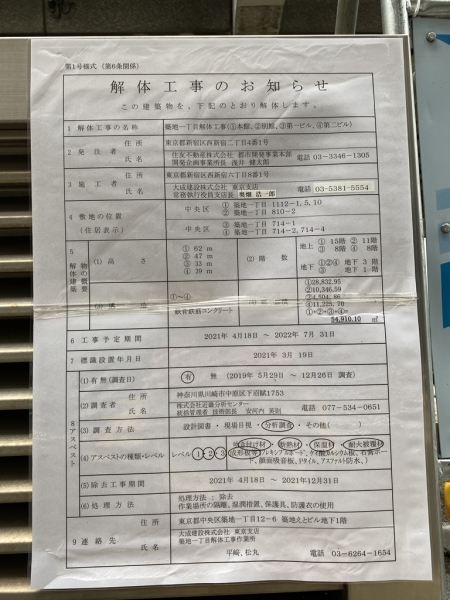 第1号様式（第6条関係）
解体工事のお知らせ
この建築物を、下記のとおり解体します。
1 解体工事の名称 築地一丁目解体工事(①本館、②別館、③第一ビル、④第二ビル)
2 発注者 住所 東京都新宿区西新宿二丁目4番1号
氏名 住友不動産株式会社 都市開発事業本部
開発企画事業所長 浅井 健太郎 電話 03-3346-1305
3 施工者 住所 東京都新宿区西新宿六丁目8番1号
氏名 大成建設株式会社 東京支店
常務執行役員支店長 奥畑 浩一郎 電話 03-5381-5554
4 敷地の位置 中央区 ① 築地一丁目 1112-1, 5, 10
② 築地一丁目 810-2
(住居表示) 中央区 ③ 築地一丁目 714-1
④ 築地一丁目 714-2, 714-4
5 解体建築物の概要
(1) 高さ
① 62 m
② 47 m
③ 33 m
④ 39 m
(2) 階数
地上 ① 15階 ② 11階
③ 8階 ④ 8階
地下 ①②④ 地下 3 階
③ 地下 1 階
(3) 構造 ①～④
鉄骨鉄筋コンクリート
①28,832.95
②10,346.59
③4,504.86
④11,225.70
①+②+③+④=
54,910.10 ㎡
6 工事予定期間 2021年 4月18日 ～ 2022年 7月31日
7 標識設置年月日 2021年 3月 19日
8 アスベスト
(1) 有無(調査日) 有 無 (2019年 5月29日 ～ 12月26日 調査)
(2) 調査者 住所 神奈川県川崎市中原区下沼部1753
氏名 株式会社近畿分析センター
統括管理者 技術部長 安河内 英則 電話 077-534-0651
(3) 調査方法 設計図書・現場目視・分析調査・その他( )
(4) アスベストの種類・レベル レベル 1・2・3
吹き付け材・断熱材・保温材・耐火被覆材
成形板等(フレキシブルボード、ケイ酸カルシウム板、石膏ボード、
(5) 除去工事期間 2021年 4月18日 ～ 2021年12月31日
(6) 処理方法 処理方法：除去
作業場所の隔離、湿潤措置、保護具、防護衣の使用
9 連絡先 住所 東京都中央区築地一丁目12-6 築地えとビル地下1階
氏名 大成建設株式会社 東京支店
築地一丁目解体工事作業所
平崎、松丸 電話 03-6264-1654